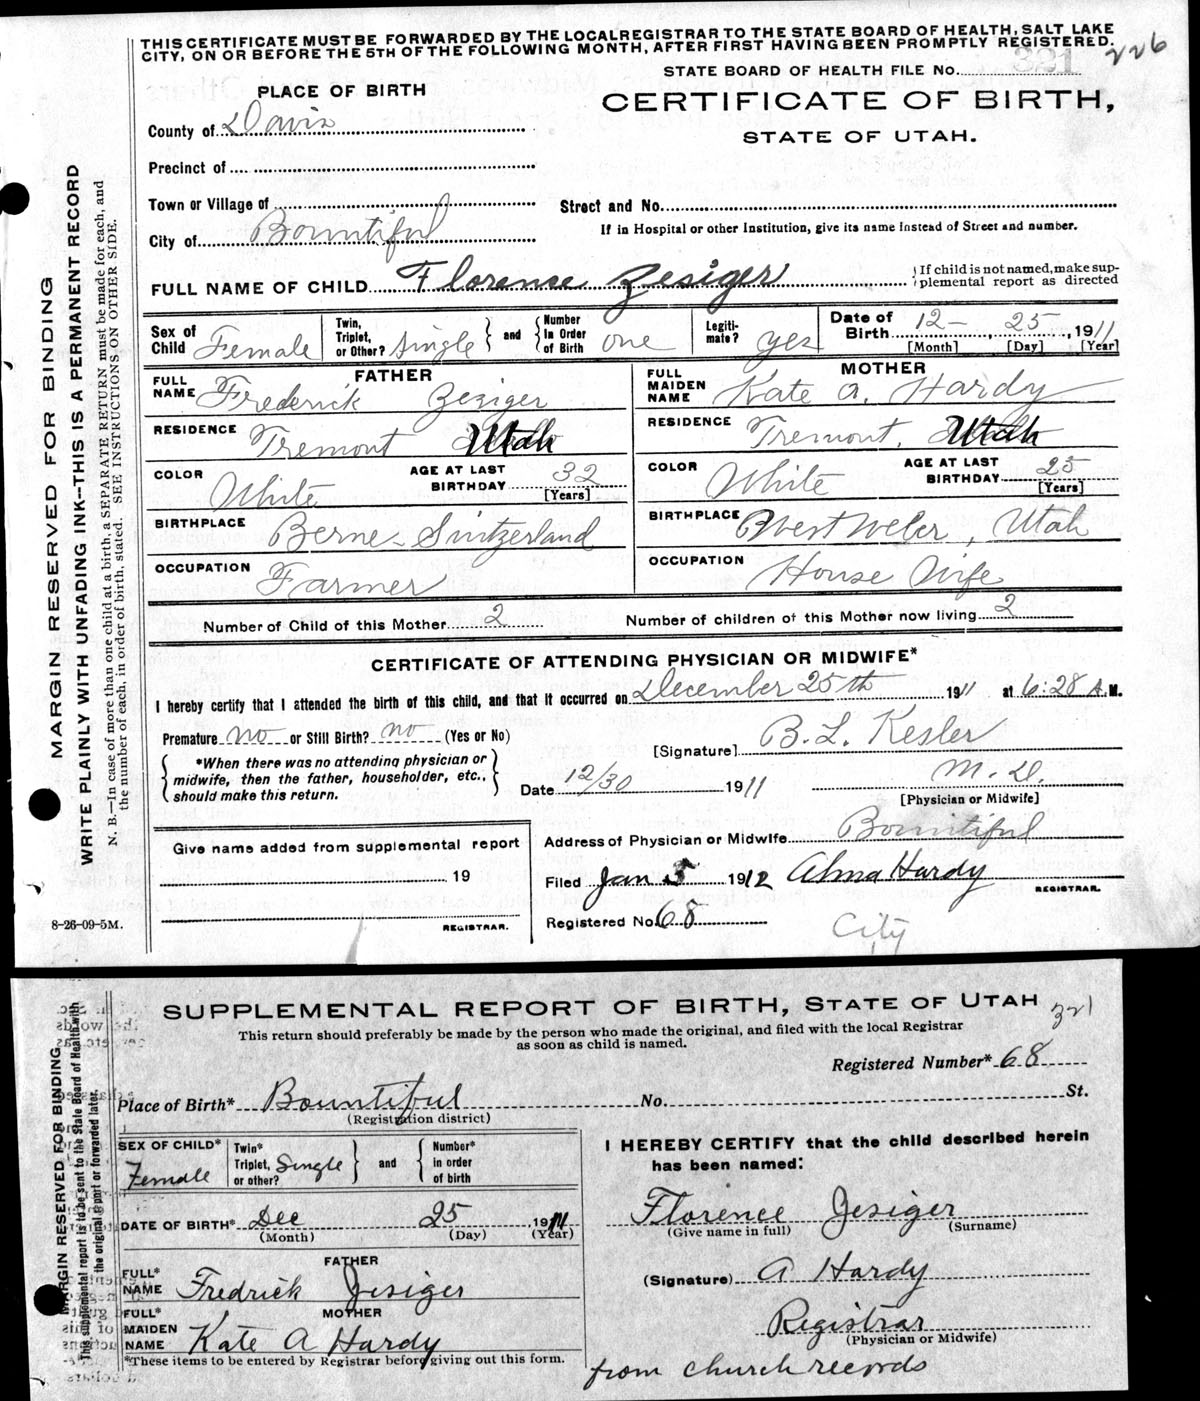 THIS CERTIFICATE MUST BE FORWARDED BY THE LOCAL REGISTRAR TO THE STATE BOARD OF HEALTH, SALT LAKE
CITY, ON OR BEFORE THE 5TH OF THE FOLLOWING MONTH, AFTER FIRST HAVING BEEN PROMPTLY REGISTERED.
226
STATE BOARD OF HEALTH FILE No. 321
PLACE OF BIRTH
CERTIFICATE OF BIRTH,
STATE OF UTAH.
County of Davis
Precinct of
Town or Village of
Street and No.
City of Bountiful
If in Hospital or other Institution, give its name instead of Street and number.
FULL NAME OF CHILD Florence Zesiger
If child is not named, make sup-
plemental report as directed
Sex of Child Female
Twin, Triplet, or Other? Single
and
Number In Order of Birth one
Legiti-mate? yes
Date of Birth 12 - 25, 1911
[Month] [Day] [Year]
FATHER
FULL NAME Frederick Zesiger
RESIDENCE Tremont Utah
COLOR White
AGE AT LAST BIRTHDAY 32
[Years]
BIRTHPLACE Berne - Switzerland
OCCUPATION Farmer
MOTHER
FULL MAIDEN NAME Kate A. Hardy
RESIDENCE Tremont, Utah
COLOR White
AGE AT LAST BIRTHDAY 25
[Years]
BIRTHPLACE West Weber, Utah
OCCUPATION House Wife
Number of Child of this Mother 2
Number of children of this Mother now living 2
CERTIFICATE OF ATTENDING PHYSICIAN OR MIDWIFE*
I hereby certify that I attended the birth of this child, and that it occurred on December 25th 1911 at 6:28 A.M.
Premature no or Still Birth? no (Yes or No)
[Signature] B. L. Kesler
*When there was no attending physician or
midwife, then the father, householder, etc.,
should make this return.
Date 12/30 1911
M.D.
[Physician or Midwife]
Give name added from supplemental report
19
REGISTRAR.
Address of Physician or Midwife Bountiful
Filed Jan 5 1912 Alma Hardy
REGISTRAR.
Registered No. 68
City
8-26-09-5M.
MARGIN RESERVED FOR BINDING
WRITE PLAINLY WITH UNFADING INK--THIS IS A PERMANENT RECORD
N. B.—In case of more than one child at a birth, a SEPARATE RETURN must be made for each, and
the number of each, in order of birth, stated. SEE INSTRUCTIONS ON OTHER SIDE.
SUPPLEMENTAL REPORT OF BIRTH, STATE OF UTAH
321
This return should preferably be made by the person who made the original, and filed with the local Registrar
as soon as child is named.
Registered Number* 68
Place of Birth* Bountiful No. St.
(Registration district)
SEX OF CHILD* Female
Twin* Triplet, or other? Single
and
Number* in order of birth
DATE OF BIRTH* Dec 25, 1911
(Month) (Day) (Year)
FATHER
FULL* NAME Fredrick Zesiger
MOTHER
FULL* MAIDEN NAME Kate A Hardy
*These items to be entered by Registrar before giving out this form.
I HEREBY CERTIFY that the child described herein
has been named:
Florence Zesiger
(Give name in full) (Surname)
(Signature) A Hardy
Registrar
(Physician or Midwife)
from church records
MARGIN RESERVED FOR BINDING
This supplemental report is to be sent to the State Board of Health with
the original report or forwarded later.